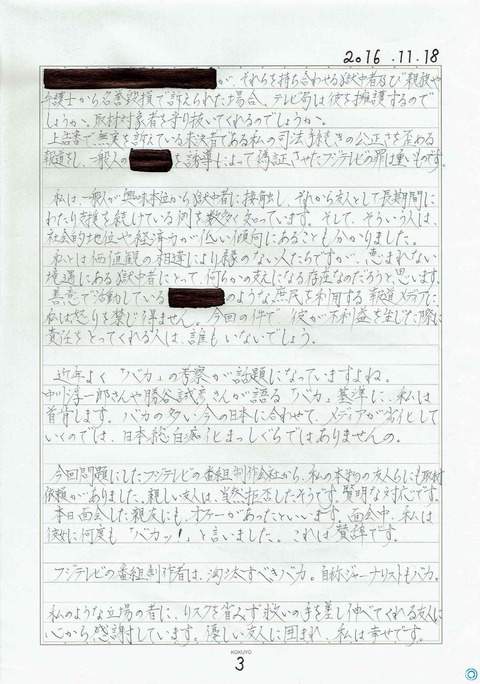 2016.11.18
が、それらを持ち合わせる獄中者及び親族や
弁護士から名誉毀損で訴えられた場合、テレビ局は彼を擁護するので
しょうか、取材対象者を守り抜いてくれるのでしょうか。
上告審で無実を訴えている未決者である私の司法手続きの公正さを歪める
報道をし、一般人の を誘導によって偽証させたフジテレビの罪は重いものです。
私は一般人が興味本位から獄中者に接触し、それから友人として長期間に
わたり支援を続けている例を数多く知っています。そして、そういう人は、
社会的地位や経済力が低い傾向にあることも分かりました。
私とは価値観の相違により縁のない人たちですが、恵まれない
境遇にある獄中者にとって、何らかの支えになる存在なのだろうと思います。
善意で活動している のような庶民を利用する報道メディアに、
私は怒りを禁じ得ません。今回の件で、彼が不利益を生じた際に
責任をとってくれる人は、誰もいないでしょう。
近年よく「バカ」の考察が話題になっていますよね。
中川淳一郎さんや勝谷誠彦さんが語る「バカ」基準に、私は
首肯します。バカの多い今の日本に合わせて、メディアが劣化して
いくのでは、日本総白痴化まっしぐらではありませんの。
今回問題にしたフジテレビの番組制作会社から、私の本物の友人らにも取材
依頼がありました。親しい友人は、当然拒否したそうです。賢明な対応です。
本日面会した親友にも、オファーがあったといいます。面会中、私は
彼女に何度も「バカッ!」と言いました。これは賛辞です。
フジテレビの番組制作者は、淘汰すべきバカ。自称ジャーナリストもバカ。
私のような立場の者に、リスクを省みず救いの手を差し伸べてくれる友人に
心から感謝しています。優しい友人に囲まれ、私は幸せです。
KOKUYO
3